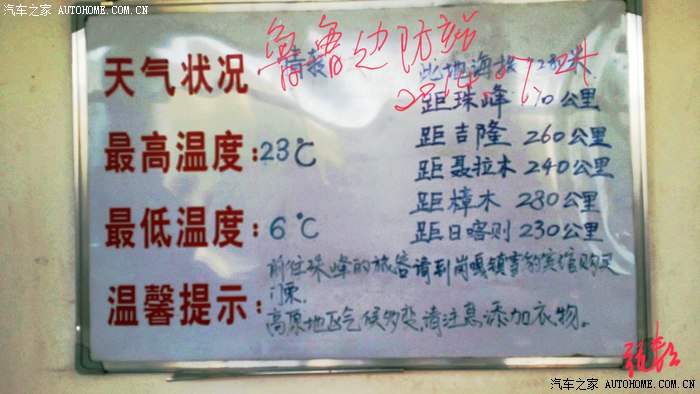 汽车之家 AUTOHOME.COM.CN
鲁鲁边防站
天气状况
此地海拔
距珠峰 170公里
最高温度：23℃
距吉隆 260公里
距聂拉木 240公里
最低温度：6℃
距樟木 280公里
距日喀则 230公里
温馨提示：
前往珠峰的旅客请到岗嘎镇雪豹宾馆购买
门票。
高原地区气候多变，请注意添加衣物。
汽车之家 AUTOHOME.COM.CN